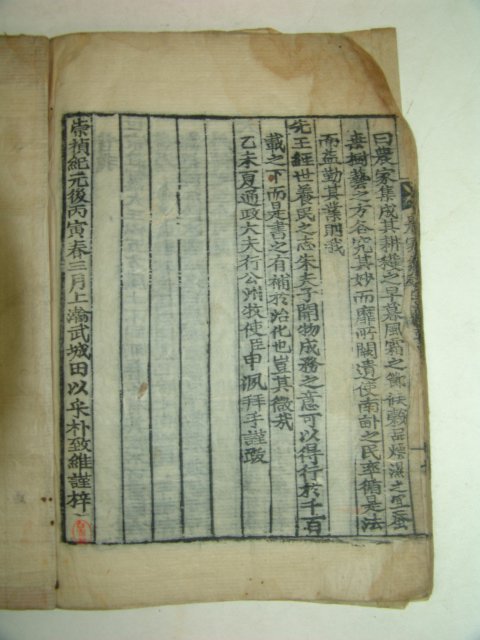 曰農家集成其耕穫之早暮風霜之備禦穀品燥濕之宜蚕
桑樹藝之方各究其妙而靡所闕遺使南訛之民率循是法
而益勤其業則我
先王經世養民之志朱夫子開物成務之意可以得行於千百
載之下而是書之有補於治化也豈其微哉
乙未夏通政大夫行公州牧使臣申洬拜手謹跋
崇禎紀元後丙寅春三月上澣武城田以采朴致維謹梓